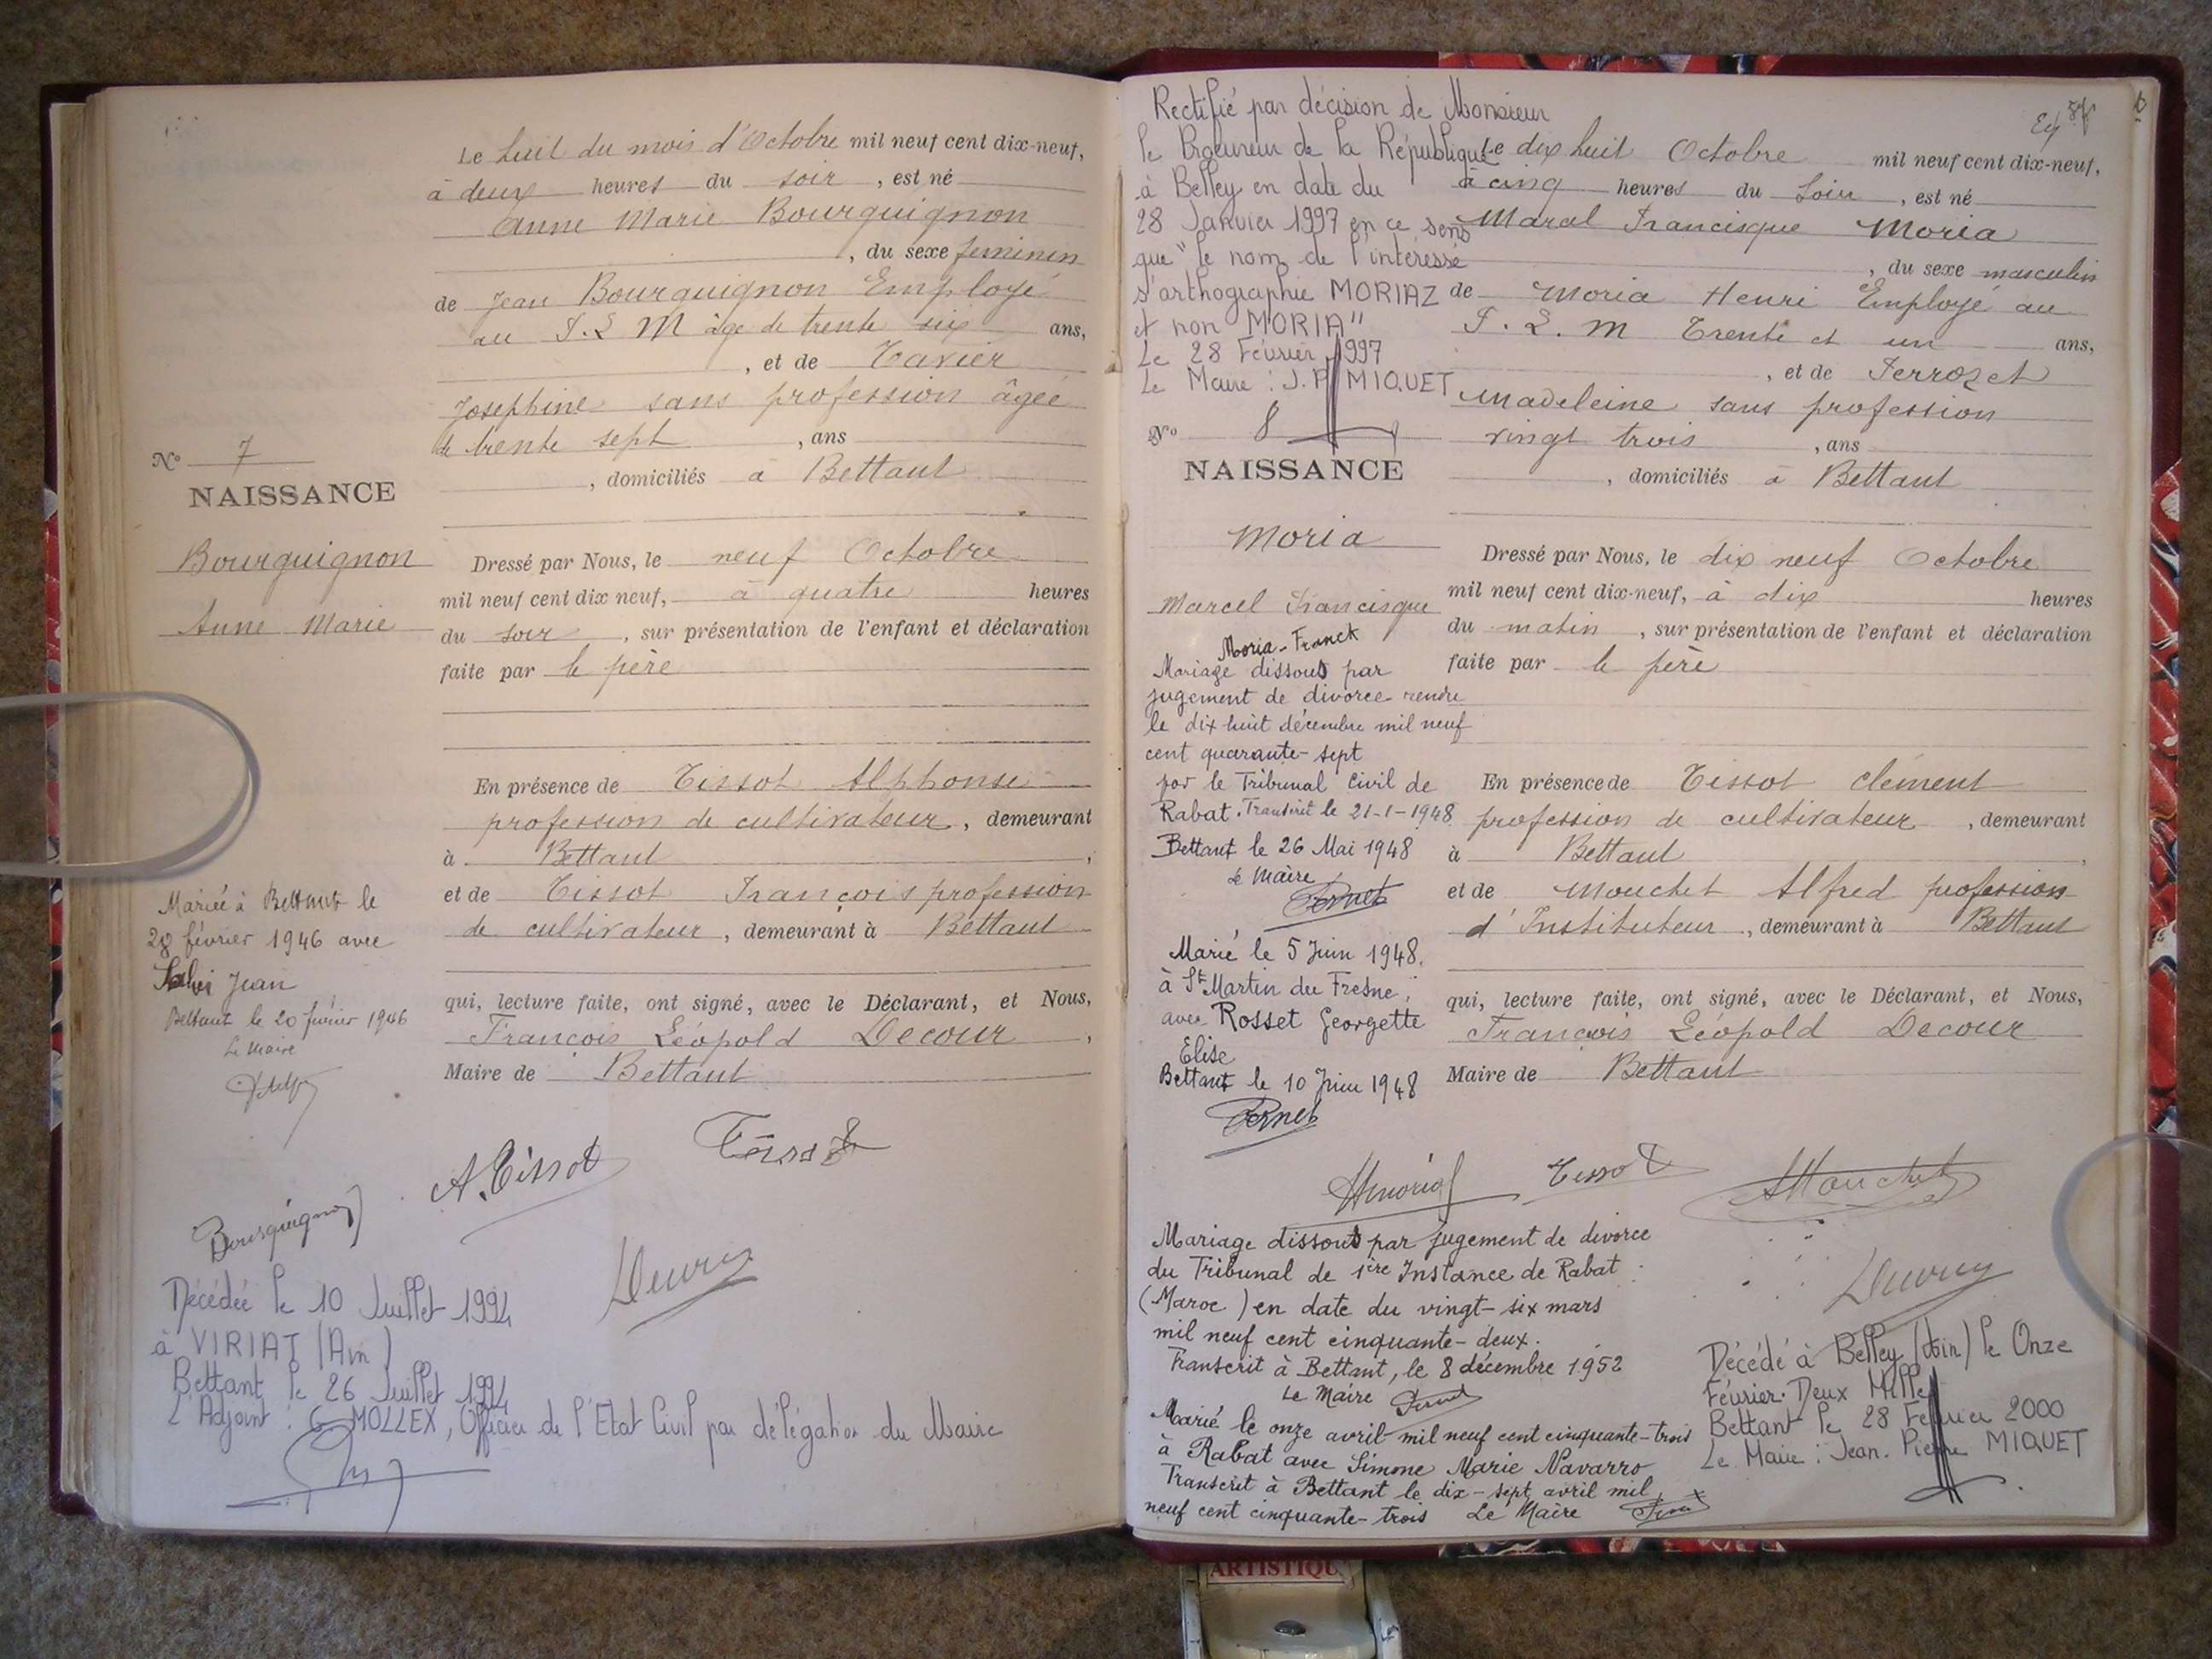 Le huit du mois d'Octobre mil neuf cent dix-neuf,
à deux heures du soir, est né
Anne Marie Bourguignon
, du sexe feminin
de Jean Bourguignon Employé
au P. L M âge de trente six ans,
, et de Tavier
Josephine sans profession âgée
de trente sept, ans
, domiciliés à Bettant
N° 7
NAISSANCE
Bourguignon
Anne Marie
Dressé par Nous, le neuf Octobre
mil neuf cent dix neuf, à quatre heures
du soir, sur présentation de l'enfant et déclaration
faite par le père
En présence de Tissot Alphonse
profession de cultivateur, demeurant
à Bettant,
et de Tissot François profession
de cultivateur, demeurant à Bettant
qui, lecture faite, ont signé, avec le Déclarant, et Nous,
François Léopold Decour,
Maire de Bettant
Mariée à Bettant le
20 février 1946 avec
Jean
Bettant le 20 février 1946
Le Maire
A. Tissot
Tissot
Bourguignon
Décédée le 10 Juillet 1994
à VIRIAT (Ain)
Bettant le 26 Juillet 1994
L'Adjoint : G. MOLLEX, Officier de l'Etat Civil par délégation du Maire
Rectifié par décision de Monsieur
le Procureur de la République
à Belley en date du
28 Janvier 1997 en ce sens
que "le nom de l'intéressé
s'orthographie MORIAZ
et non MORIA"
Le 28 Février 1997
Le Maire : J.P MIQUET
N° 8
NAISSANCE
Moria
Marcel Francisque
Moria-Franck
Mariage dissous par
jugement de divorce rendu
le dix huit décembre mil neuf
cent quarante-sept
par le Tribunal Civil de
Rabat. Transcrit le 21-1-1948
Bettant le 26 Mai 1948
Le Maire
Pernet
Marié le 5 Juin 1948
à St Martin du Fresne
avec Rosset Georgette
Elise
Bettant le 10 Juin 1948
Pernet
Le dix huit Octobre mil neuf cent dix-neuf,
à cinq heures du Soir, est né
Marcel Francisque Moria
, du sexe masculin
de Moria Henri Employé au
P. L. M Trente et un ans,
, et de Perrozet
Madeleine sans profession
vingt trois, ans
, domiciliés à Bettant
Dressé par Nous, le dix neuf Octobre
mil neuf cent dix-neuf, à dix heures
du matin, sur présentation de l'enfant et déclaration
faite par le père
En présence de Tissot Clément
profession de cultivateur, demeurant
à Bettant,
et de Mouchet Alfred profession
d'Instituteur, demeurant à Bettant
qui, lecture faite, ont signé, avec le Déclarant, et Nous,
François Léopold Decour
Maire de Bettant
Tissot
AMouchet
Mariage dissous par jugement de divorce
du Tribunal de 1ère Instance de Rabat
(Maroc) en date du vingt-six mars
mil neuf cent cinquante-deux.
Transcrit à Bettant, le 8 décembre 1952
Le Maire Pernet
Marié le onze avril mil neuf cent cinquante-trois
à Rabat avec Simone Marie Navarro
Transcrit à Bettant le dix-sept avril mil
neuf cent cinquante-trois Le Maire Pernet
Décédé à Belley (Ain) le Onze
Février Deux Mille
Bettant le 28 Février 2000
Le Maire : Jean. Pierre MIQUET
ARTISTIQU